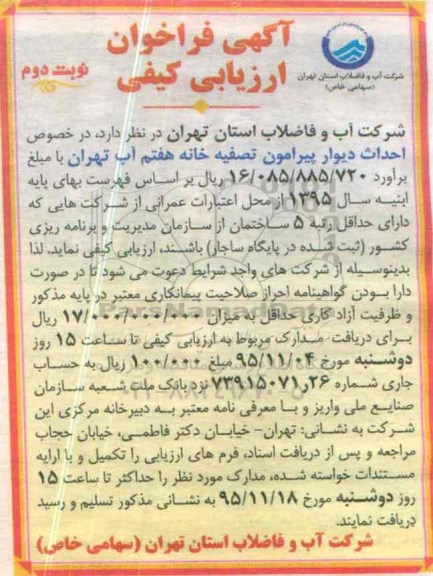 آگهی فراخوان
ارزیابی کیفی
نوبت دوم
شرکت آب و فاضلاب استان تهران
(سهامی خاص)
شرکت آب و فاضلاب استان تهران در نظر دارد، در خصوص
احداث دیوار پیرامون تصفیه خانه هفتم آب تهران با مبلغ
برآورد ۱۶/۰۸۵/۸۸۵/۷۲۰ ریال بر اساس فهرست بهای پایه
ابنیه سال ۱۳۹۵ از محل اعتبارات عمرانی از شرکت هایی که
دارای حداقل رتبه ۵ ساختمان از سازمان مدیریت و برنامه ریزی
کشور (ثبت شده در پایگاه ساجار) باشند، ارزیابی کیفی نماید. لذا
بدینوسیله از شرکت های واجد شرایط دعوت می شود تا در صورت
دارا بودن گواهینامه احراز صلاحیت پیمانکاری معتبر در پایه مذکور
و ظرفیت آزاد کاری حداقل به میزان ۱۷/۰۰۰/۰۰۰/۰۰۰ ریال
برای دریافت مدارک مربوط به ارزیابی کیفی تا ساعت ۱۵ روز
دوشنبه مورخ ۹۵/۱۱/۰۴ مبلغ ۱۰۰/۰۰۰ ریال به حساب
جاری شماره ۷۳۹۱۵۰۷۱٫۲۶ نزد بانک ملت شعبه سازمان
صنایع ملی واریز و با معرفی نامه معتبر به دبیرخانه مرکزی این
شرکت به نشانی: تهران- خیابان دکتر فاطمی، خیابان حجاب
مراجعه و پس از دریافت اسناد، فرم های ارزیابی را تکمیل و با ارایه
مستندات خواسته شده، مدارک مورد نظر را حداکثر تا ساعت ۱۵
روز دوشنبه مورخ ۹۵/۱۱/۱۸ به نشانی مذکور تسلیم و رسید
دریافت نمایند.
شرکت آب و فاضلاب استان تهران (سهامی خاص)